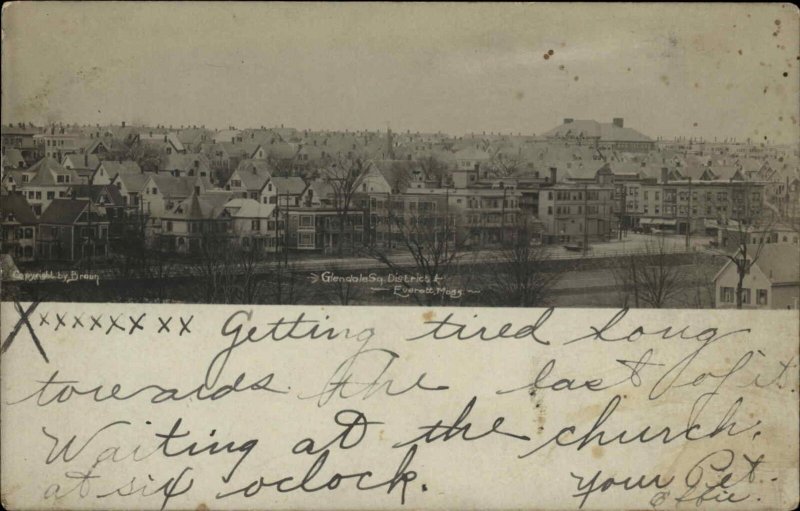 Copyright by Braun
Glendale Sq. District
Everett, Mass
X xxxxxxx xx Getting tired long
towards the last of it.
Waiting at the church.
at six o'clock. Your Pet.
Effie.